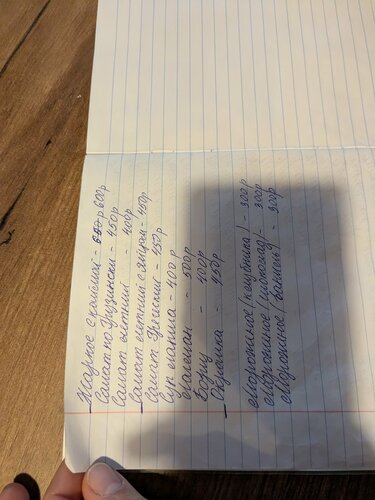 Жаркое с капустой - 600р
Салат по Грузински - 450р
Салат летний - 400р
Салат летний с яйцом - 450р
Салат Греческий - 450р
Суп лапша - 400р
- 500р
Борщ - 400р
Окрошка - 450р
Мороженое (клубника) - 300р
Мороженое (шоколад) - 300р
Мороженое (ваниль) - 300р